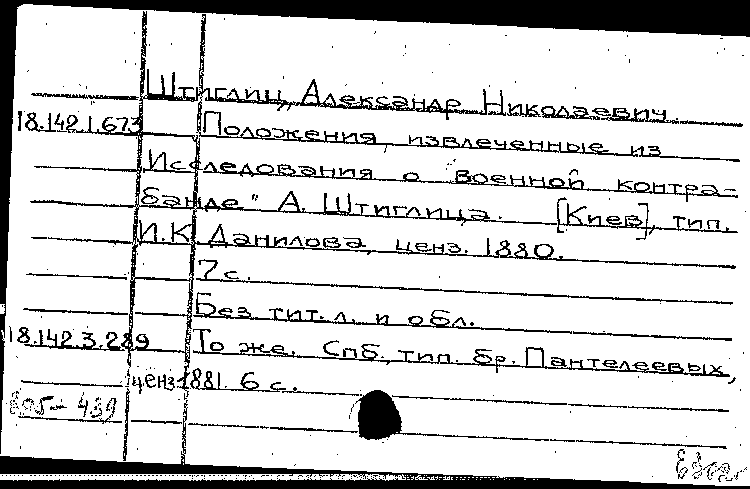 Штиглиц, Александр Николаевич.
18.142.1.673 Положения, извлеченные из
„Исследования о военной контра-
банде" А. Штиглица. [Киев], тип.
И.К. Данилова, ценз. 1880.
7 с.
Без тит. л. и обл.
18.142.3.289 То же. Спб., тип. бр. Пантелеевых,
ценз. 1881. 6 с.
439